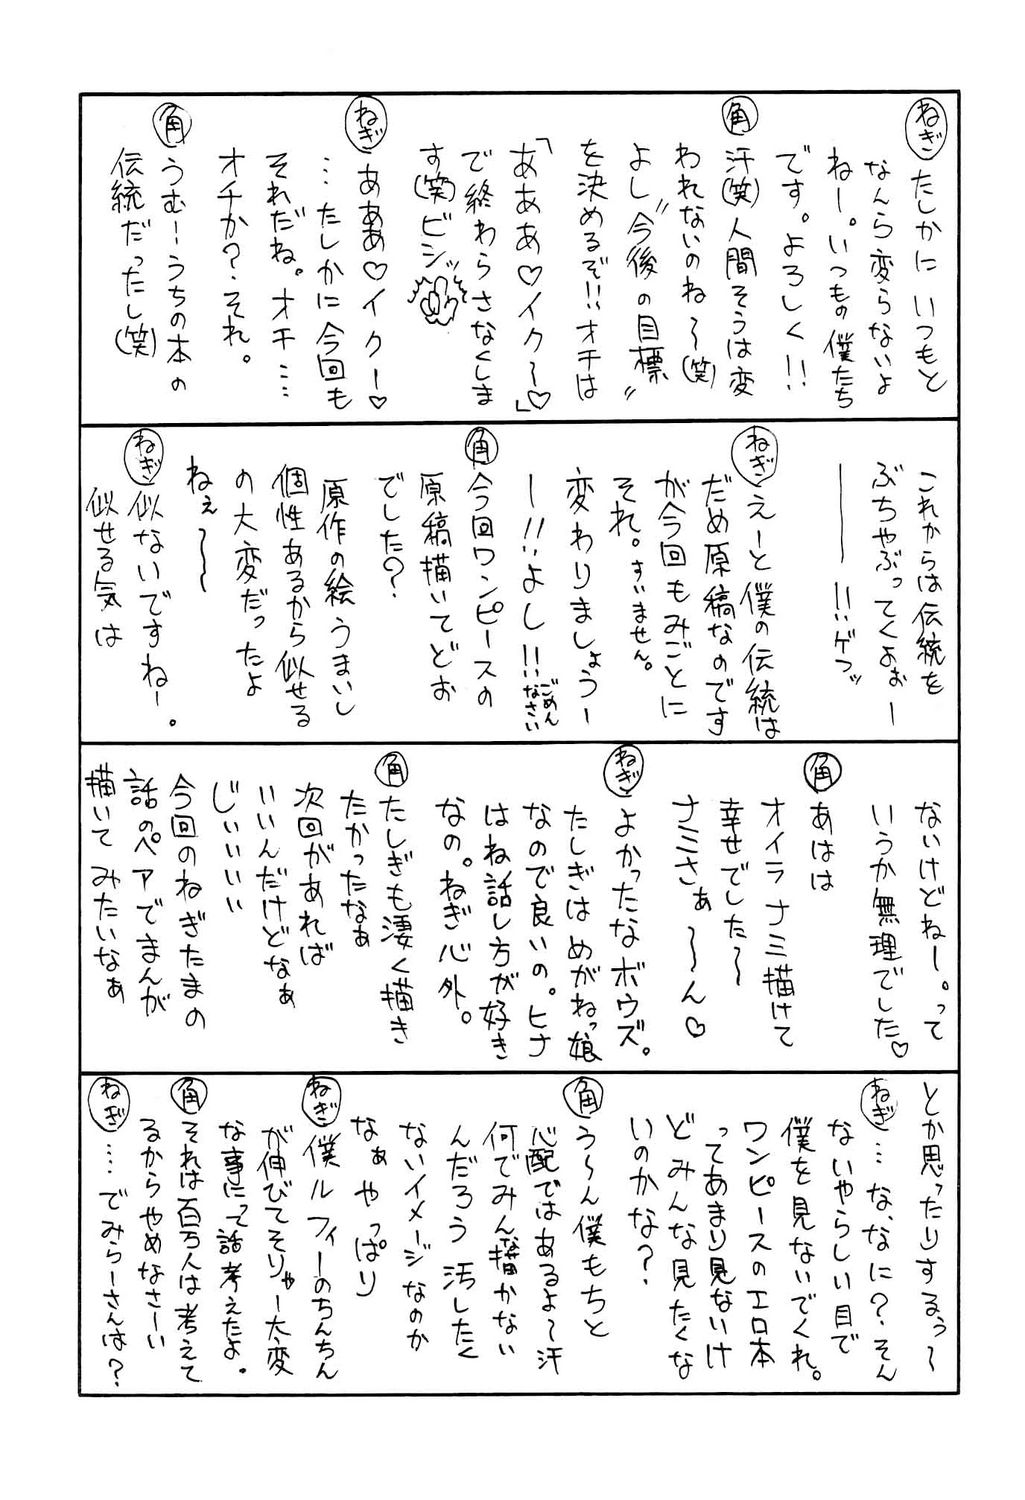 ねぎ
たしかにいつもと
なんら変らないよ
ねー。いつもの僕たち
です。よろしく!!
角
汗(笑)人間そうは変
われないのね〜(笑)
よし"今後の目標"
を決めるぞ!!オチは
「あああ♡イク〜♡」
で終わらさなくしま
す(笑)ビシッ
ねぎ
あああ♡イクー♡
…たしかに今回も
それだね。オチ…
オチか?それ。
角
うむーうちの本の
伝統だったし(笑)
これからは伝統を
ぶちやぶってくよぉー
――!!ゲフッ
ねぎ
えーと僕の伝統は
だめ原稿なのです
が今回もみごとに
それ。すいません。
変わりましょうー
ー!!よし!!ごめんなさい
角
今回ワンピースの
原稿描いてどお
でした?
原作の絵うまいし
個性あるから似せる
の大変だったよ
ねぇ〜〜
ねぎ
似ないですねー。
似せる気は
ないけどねー。って
いうか無理でした♡
角
あはは
オイラナミ描けて
幸せでした〜
ナミさぁ〜〜ん♡
ねぎ
よかったなボウズ。
たしぎはめがねっ娘
なので良いの。ヒナ
はね話し方が好き
なの。ねぎ心外。
角
たしぎも凄く描き
たかったなぁ
次回があれば
いいんだけどなぁ
じぃぃぃぃ
今回のねぎたまの
話のペアでまんが
描いてみたいなぁ
とか思ったりするぅ〜
ねぎ
…な、なに?そん
ないやらしい目で
僕を見ないでくれ。
ワンピースのエロ本
ってあまり見ないけ
どみんな見たくな
いのかな?
角
う〜ん僕もちと
心配ではあるよ〜汗
何でみんな描かない
んだろう汚したく
ないイメージなのか
なぁやっぱり
ねぎ
僕ルフィーのちんちん
が伸びてそりゃー大変
な事にって話考えたよ。
角
それは百万人は考えて
るからやめなさーい
ねぎ
……でみらーさんは?